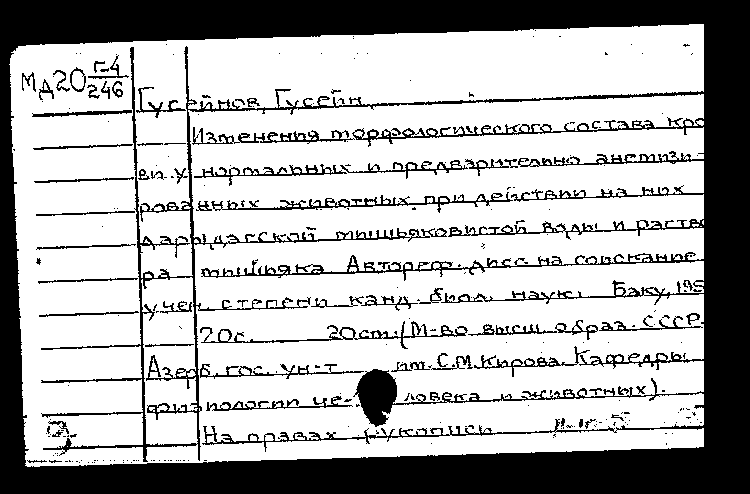 МД20 Г-4
246
Гусейнов, Гусейн
Изменения морфологического состава кро
ви у нормальных и предварительно анемизи-
рованных животных при действии на них
дарыдагской мышьяковистой воды и раство
ра мышьяка Автореф. дисс на соискание
учен степени канд. биол. наук. Баку, 195
20с. 20см. (М-во высш образ. СССР.
Азерб. гос. ун-т им. С.М. Кирова. Кафедры
физиологии че- ловека и животных).
На правах рукописи